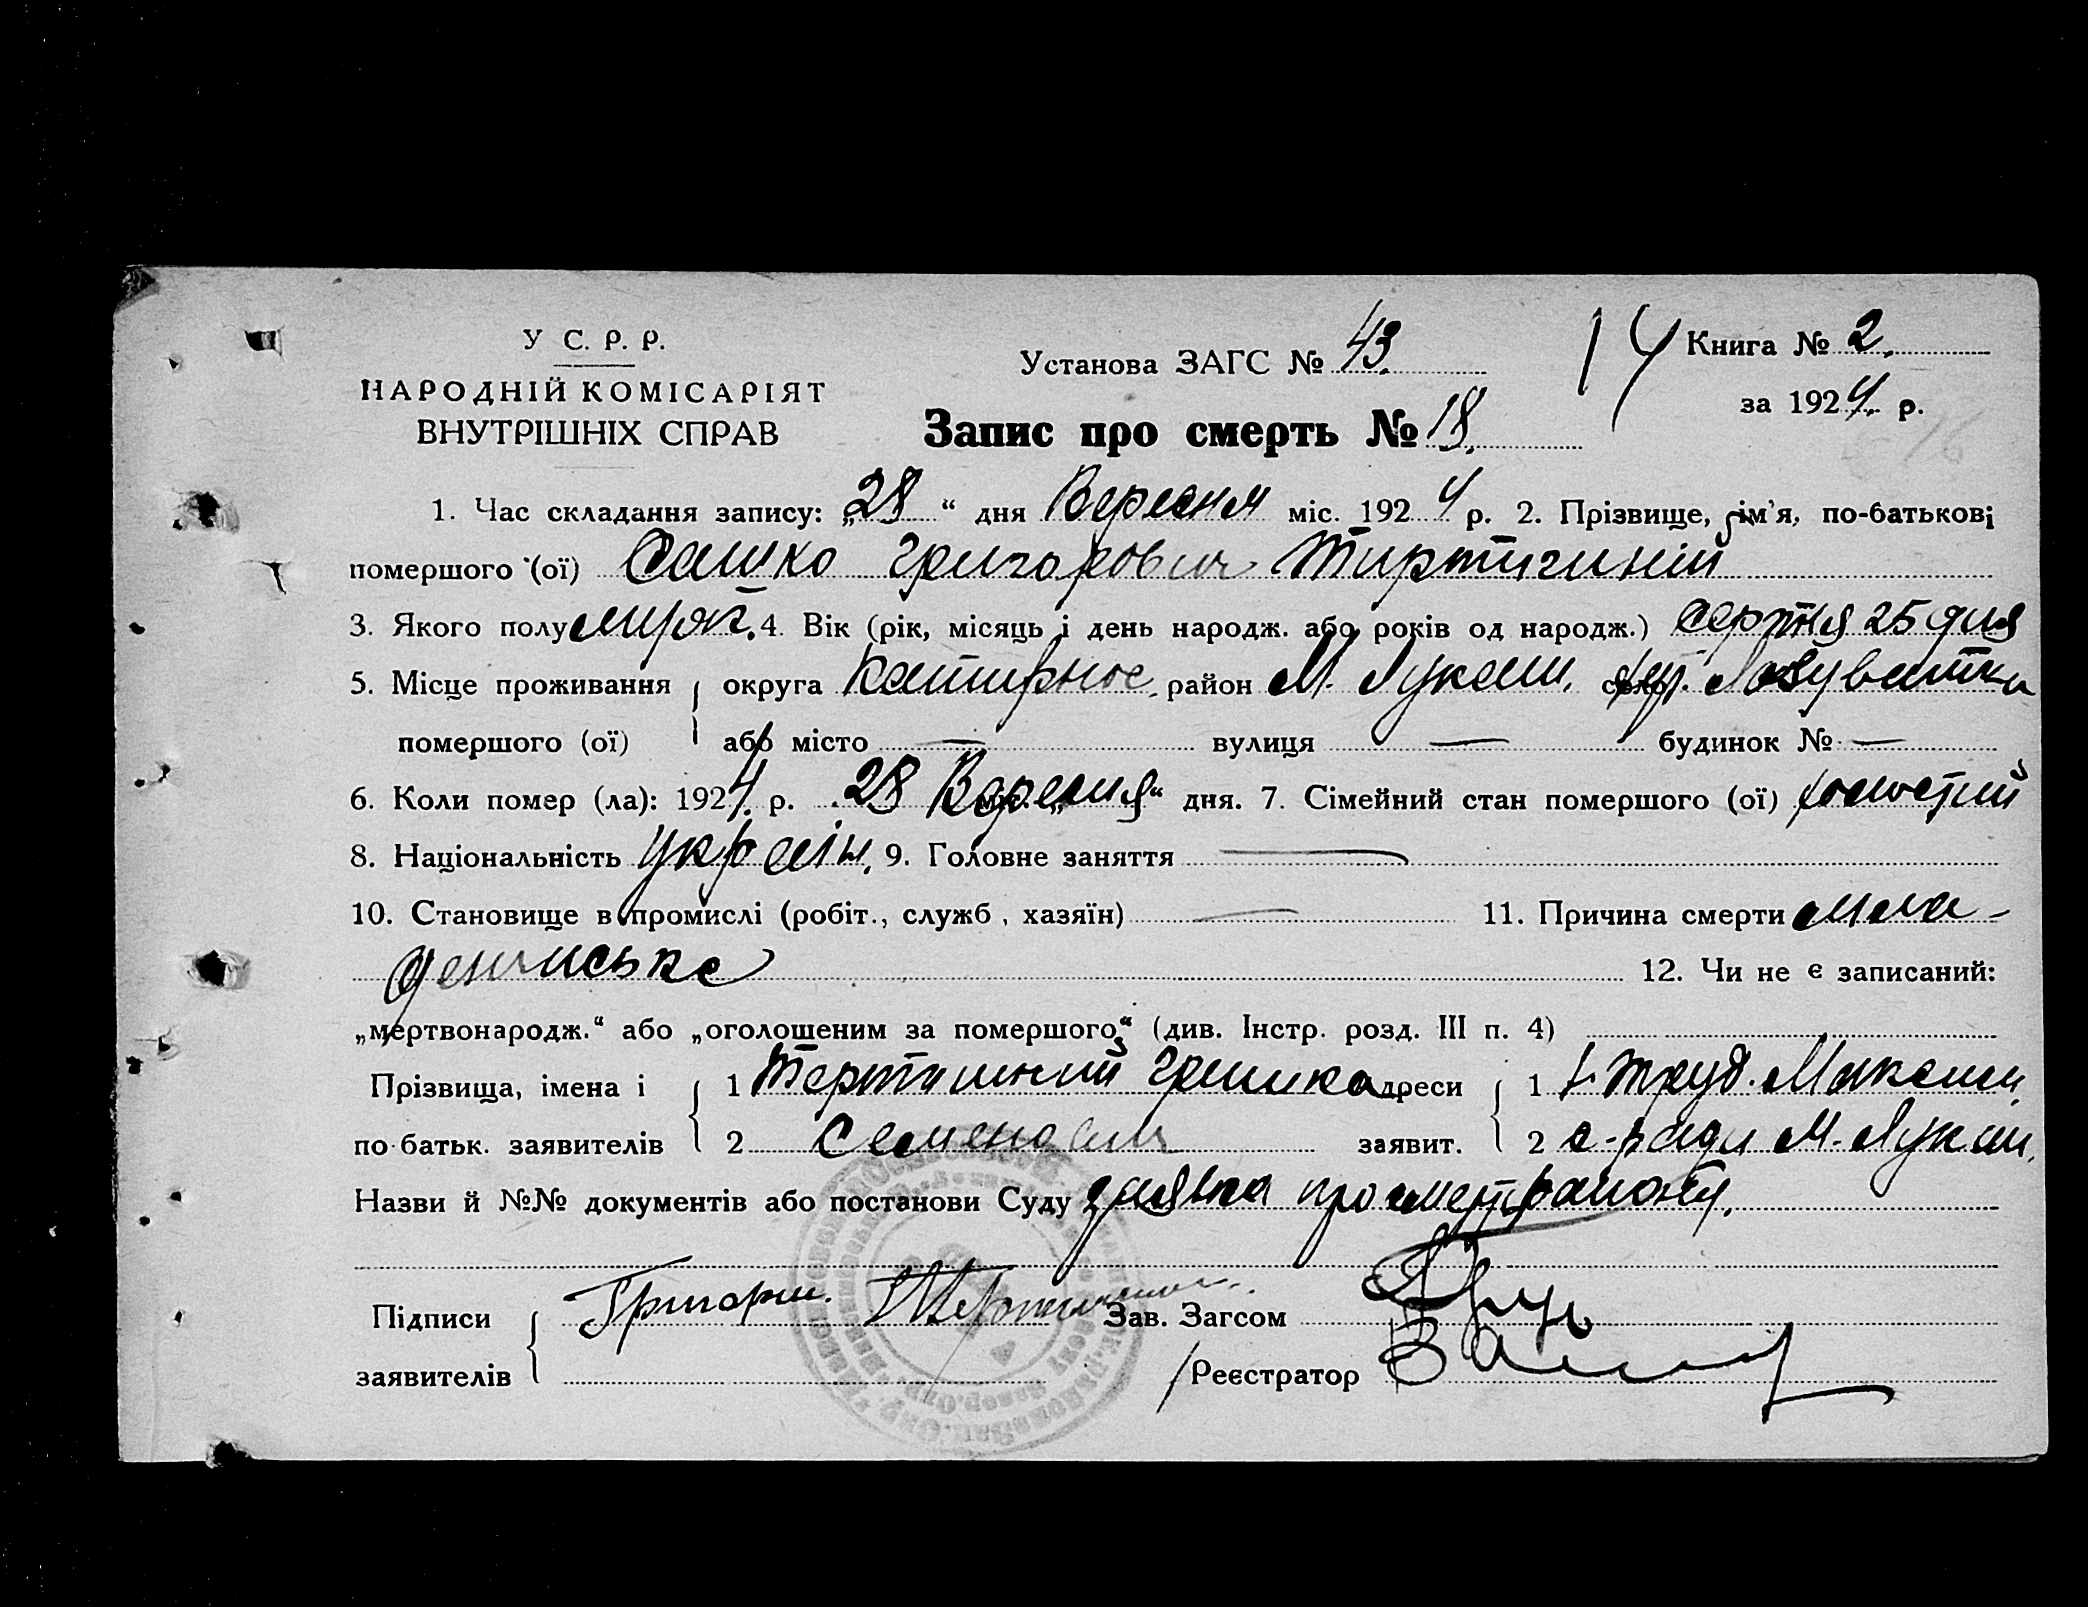 У С. Р. Р.
НАРОДНІЙ КОМІСАРІЯТ
ВНУТРІШНІХ СПРАВ
Установа ЗАГС № 43.
14
Книга № 2.
за 1924 р.
Запис про смерть № 18.
1. Час складання запису: „28“ дня Вересня міс. 1924 р. 2. Прізвище, ім'я, по-батькові
помершого (ої) Сашко Григорович Тиртичний
3. Якого полу 4. Вік (рік, місяць і день народж. або років од народж.) Серпня 25 дня
5. Місце проживання округа район М. Лукаш. село хут. Лозуватка
помершого (ої) або місто — вулиця — будинок № —
6. Коли помер (ла): 1924 р. 28 Вересня міс. „ “ дня. 7. Сімейний стан помершого (ої) холостий
8. Національність Україн. 9. Головне заняття —
10. Становище в промислі (робіт., служб, хазяїн) — 11. Причина смерти мла-
денчиське 12. Чи не є записаний:
„мертвонародж.“ або „оголошеним за помершого“ (див. Інстр. розд. III п. 4)
Прізвища, імена і 1 Тертишний Гришка адреси 1
по-батьк. заявителів 2 Семенович заявит. 2 М-Лукаш.
Назви й №№ документів або постанови Суду заявка про
Підписи Григорий Зав. Загсом
заявителів Реєстратор